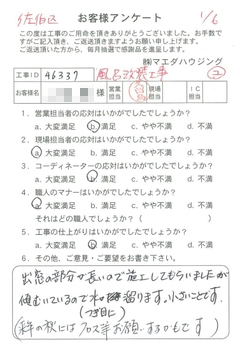 佐伯区
お客様アンケート
1/6
この度は工事のご用命を頂きありがとうございました。お手数で
すがご記入頂き、ご返送頂きますようお願い申し上げます。
ご返送頂いた方から、毎月抽選で感謝品を進呈します。
㈱マエダハウジング
工事ID 46337 風呂改装工事 ②
様 営業担当 現場担当 IC
1. 営業担当者の応対はいかがでしたでしょうか?
a.大変満足 b.満足 c.やや不満 d.不満
2. 現場担当者の応対はいかがでしたでしょうか?
a.大変満足 b.満足 c.やや不満 d.不満
3. コーディネーターの応対はいかがでしたでしょうか?
a.大変満足 b.満足 c.やや不満 d.不満
4. 職人のマナーはいかがでしたでしょうか?
a.大変満足 b.満足 c.やや不満 d.不満
それはどの職人でしょうか?( )
5. 工事の仕上がりはいかがでしたでしょうか?
a.大変満足 b.満足 c.やや不満 d.不満
6. その他、ご意見・ご要望をお書き下さい。
出窓の部分が長いので施工してもらいましたが
傾むいているので水が溜ります。小さいことです。
(つぎ目に)
お願いするかもです)